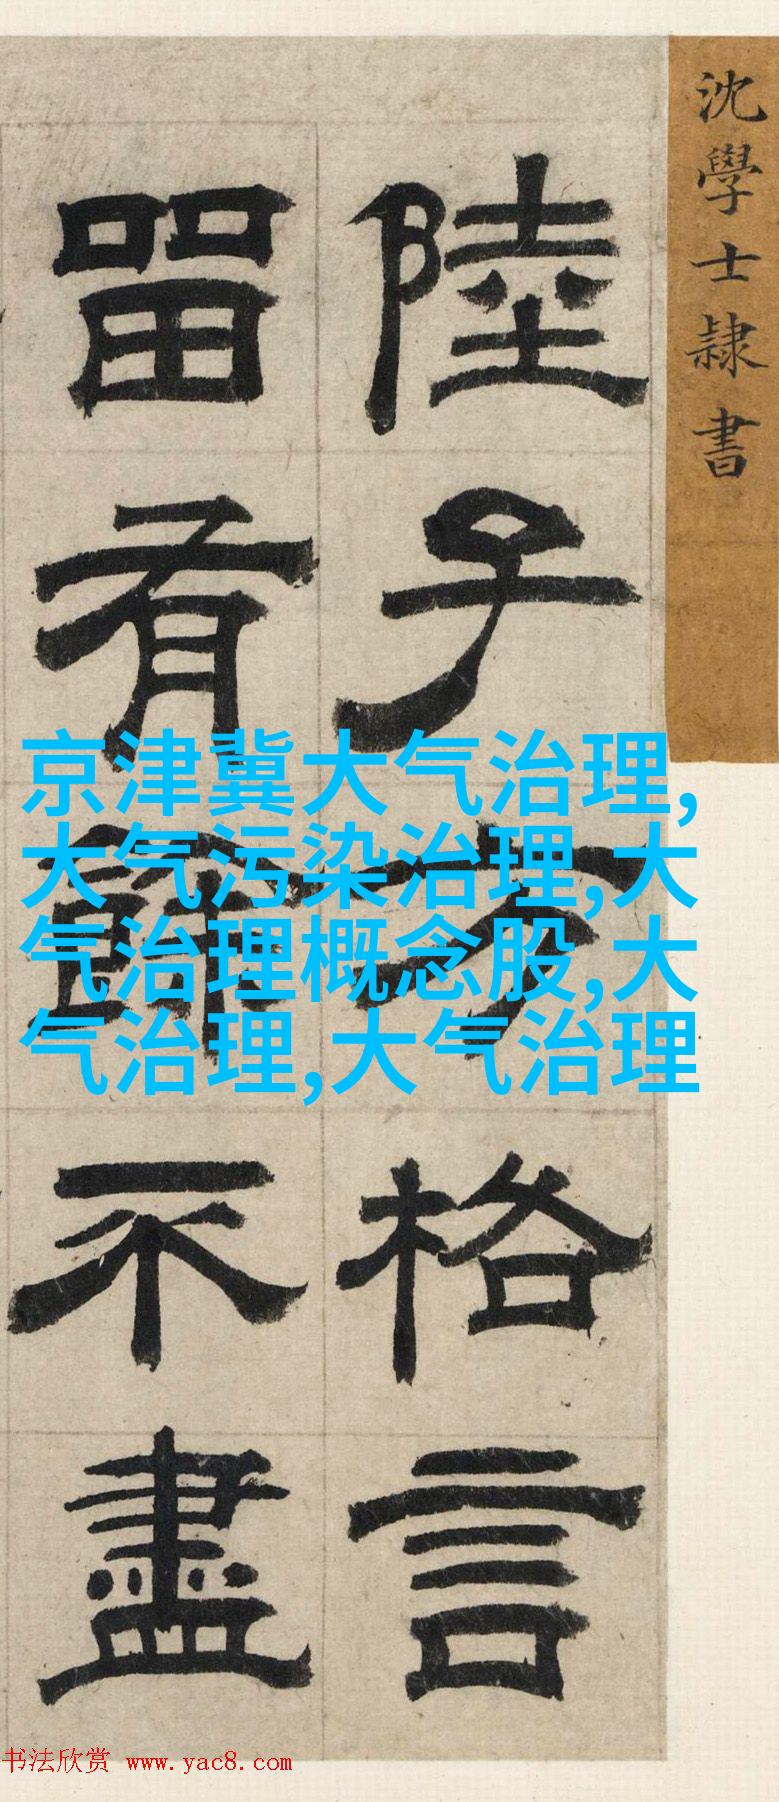 沈學士隸書
陸子方格言
畱有餘不盡
京津冀大气治理,
大气污染治理,大
气治理概念股,大
气治理,大气治理
书法欣赏 www.yac8.com